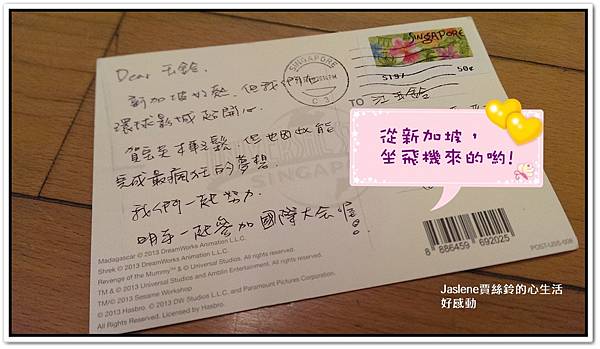 Dear 玉鈴,
新加坡好熱, 但我們在
環球影城超開心.
賀寶芙棒鬆 但也因此能
完成最瘋狂的夢想.
我們一起努力.
明年一起參加國際大會喔!
SINGAPORE
SINGAPORE
50¢
TO 江玉鈴
SINGAPORE
從新加坡，
坐飛機來的喲!
Madagascar © 2013 DreamWorks Animation L.L.C.
Shrek © 2013 DreamWorks Animation L.L.C.
Revenge of the Mummy™ & © Universal Studios. All rights reserved.
TM & © 2013 Universal Studios and Amblin Entertainment. All rights reserved.
TM/© 2013 Sesame Workshop
© 2013 Hasbro. © 2013 DW Studios L.L.C. and Paramount Pictures Corporation.
All Rights Reserved. Licensed by Hasbro.
8 886459 692025
POST-USS-008
Jaslene賈絲鈴的心生活
好感動